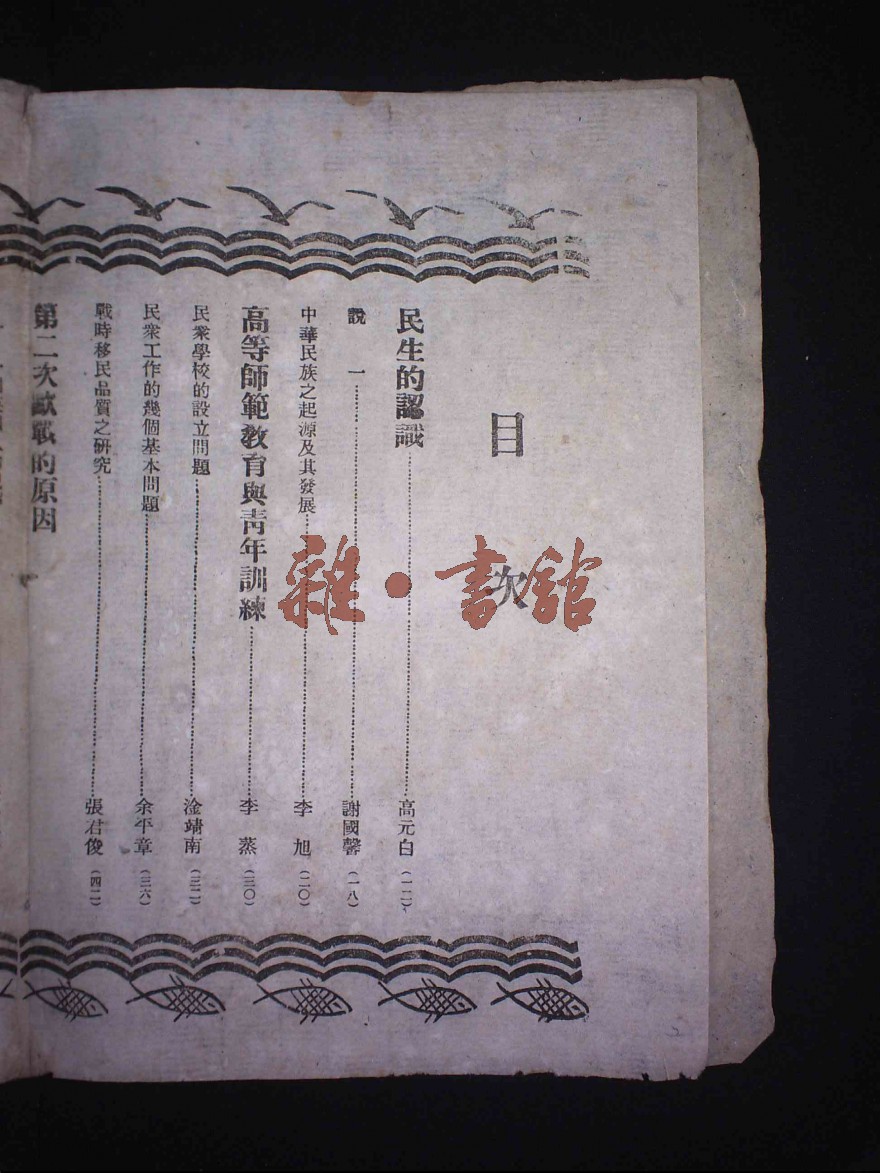 目次
民生的認識 高元白 (一二)
說一 謝國馨 (一八)
中華民族之起源及其發展 李旭 (二〇)
高等師範教育與青年訓練 李蒸 (三〇)
民衆學校的設立問題 淦靖南 (三二)
民衆工作的幾個基本問題 余平章 (三六)
戰時移民品質之研究 張君俊 (四二)
第二次歐戰的原因
雜·書館